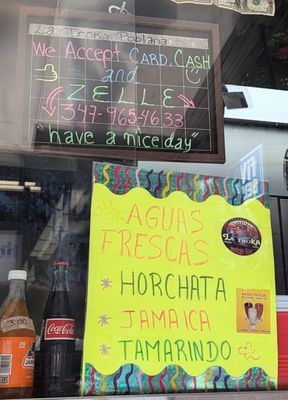 La Troka Poblana
We Accept CARD, CASH
and
ZELLE
347-965-4633
"have a nice day"
AGUAS
FRESCAS
LA TROKA
* HORCHATA
* JAMAICA
* TAMARINDO
3.00
Coca-Cola